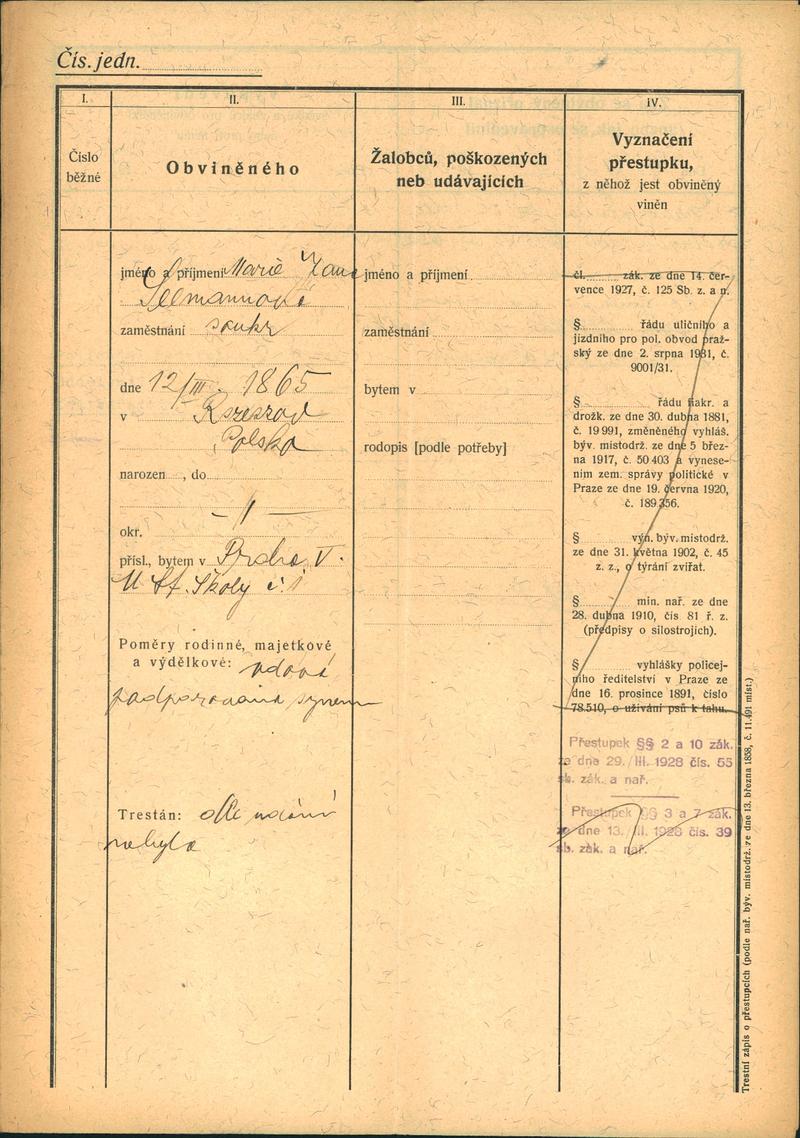 Čís. jedn.
I.
Číslo
běžné
II.
Obviněného
III.
Žalobců, poškozených
neb udávajících
IV.
Vyznačení
přestupku,
z něhož jest obviněný
viněn
jméno a příjmení Marie
zaměstnání soukr
dne 12/III. 1865
v
Polsko
narozen , do
- 11 -
okr.
přísl., bytem v Praha V.
U St. Školy č. 1
Poměry rodinné, majetkové
a výdělkové: vdova
podporována synem
Trestán: dle udání
nebyla
jméno a příjmení
zaměstnání
bytem v
rodopis [podle potřeby]
čl. zák. ze dne 14. čer-
vence 1927, č. 125 Sb. z. a n.
§ řádu uličního a
jízdního pro pol. obvod praž-
ský ze dne 2. srpna 1931, č.
9001/31.
§ řádu fiakr. a
drožk. ze dne 30. dubna 1881,
č. 19 991, změněného vyhláš.
býv. místodrž. ze dne 5 břez-
na 1917, č. 50 403 a vynese-
ním zem. správy politické v
Praze ze dne 19. června 1920,
č. 189.356.
§ výn. býv. místodrž.
ze dne 31. května 1902, č. 45
z. z., o týrání zvířat.
§ min. nař. ze dne
28. dubna 1910, čís 81 ř. z.
(předpisy o silostrojích).
§ vyhlášky policej-
ního ředitelství v Praze ze
dne 16. prosince 1891, číslo
78.510, o užívání psů k tahu.
Přestupek §§ 2 a 10 zák.
ze dne 29./III. 1928 čís. 55
sb. zák. a nař.
Přestupek §§ 3 a 7 zák.
ze dne 13./II. 1928 čís. 39
sb. zák. a nař.
Trestní zápis o přestupcích (podle nař. býv. místodrž. ze dne 13. března 1858, č. 11.491 míst.)